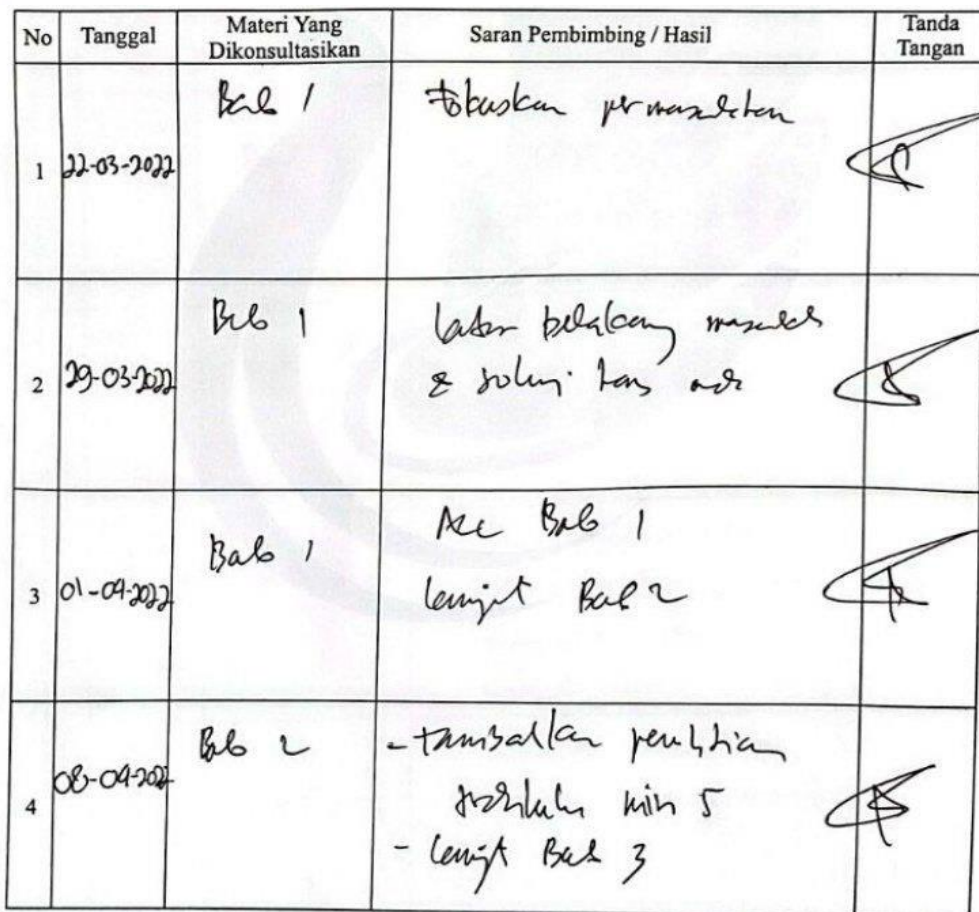 No Tanggal Materi Yang Dikonsultasikan Saran Pembimbing / Hasil Tanda Tangan
1 22-03-2022 Bab 1 Fokuskan permasalahan
2 29-03-2022 Bab 1 latar belakang masalah
& solusi
3 01-04-2022 Bab 1 Acc Bab 1
lanjut Bab 2
4 08-04-2022 Bab 2 - tambahkan penelitian
terdahulu min 5
- lanjut Bab 3